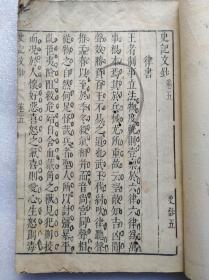 史記文鈔 卷五
律書
王者制事立法物度軌則壹稟於六律六律為萬
事根本焉其於兵械尤所重故云望敵知吉凶聞
聲效勝負百王不易之道也武王伐紂吹律聽聲
推孟春以至于季冬殺氣相并而音尚宮同聲相
從物之自然何足怪哉兵者聖人所以討彊暴平
亂世夷險阻救危殆自含血戴角之獸見犯則校
而況於人懷好惡喜怒之氣喜則愛心生怒則毒
史記文鈔 卷五